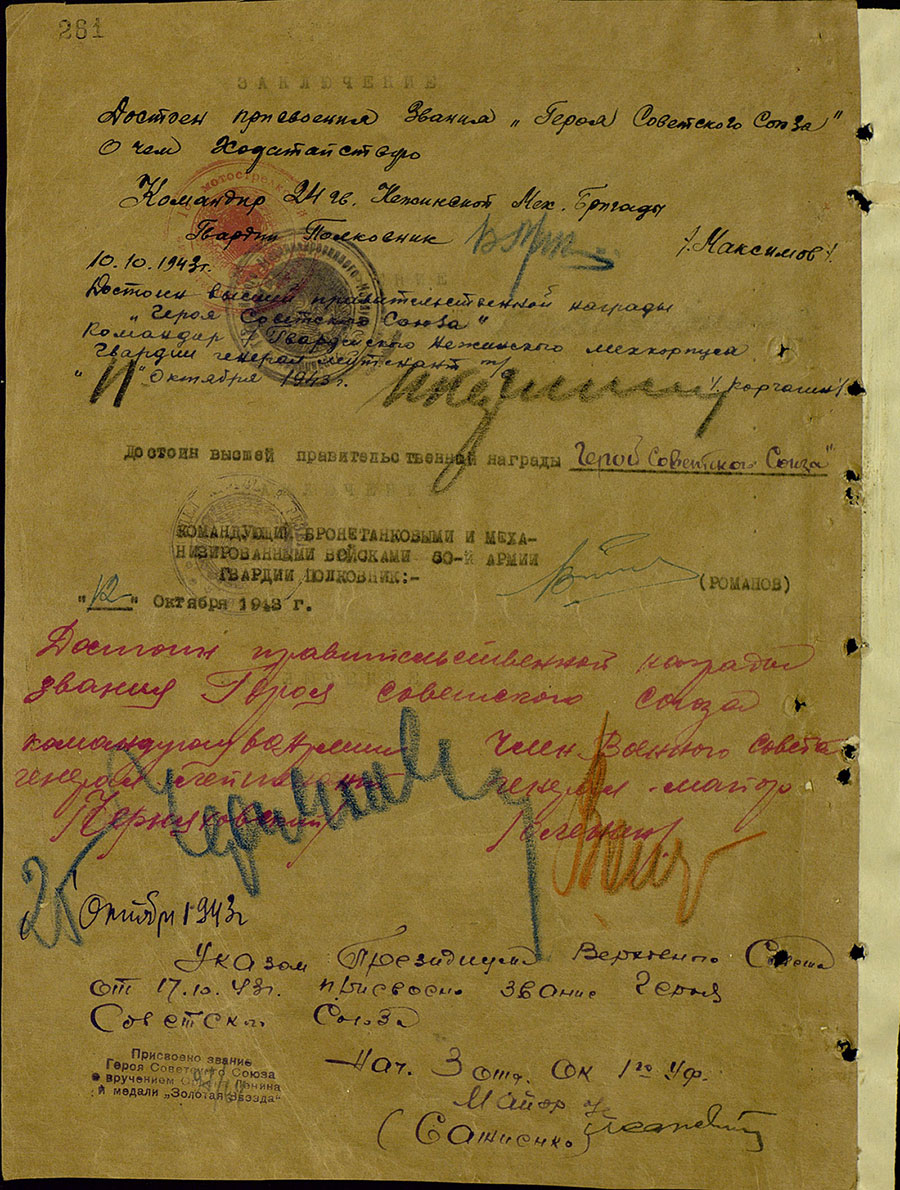 261
ЗАКЛЮЧЕНИЕ
Достоен присвоения Звания „Героя Советского Союза"
О чем Ходатайствую
Командир 24 гв. Нежинской Мех. Бригады
Гвардии Полковник /.Максимов/.
10.10.1943г.
Достоин высшей правительственной награды
„Героя Советского Союза"
Командир 7 Гвардейского Нежинского мехкорпуса
Гвардии генерал лейтенант т/в
"11" Октября 1943г. /.Корчагин/.
Достоин высшей правительственной награды Герой Советского Союза"
КОМАНДУЮЩИЙ БРОНЕТАНКОВЫМИ И МЕХА-
НИЗИРОВАННЫМИ ВОЙСКАМИ 60-Й АРМИИ
ГВАРДИИ ПОЛКОВНИК:-
(РОМАНОВ)
"12" Октября 1943 г.
Достоин правительственной награды
звания Героя советского союза
командующий армии Член Военного Совета
генерал лейтенант генерал-майор
/Черняховский/ /Оленин/
25 Октября 1943г
Указом Президиума Верховного Совета
от 17.10.43г. присвоено звание Героя
Советского Союза
Присвоено звание
Героя Советского Союза
с вручением Ленина
и медали „Золотая Звезда"
Нач. 3 отд. ОК 1го Уф.
Майор